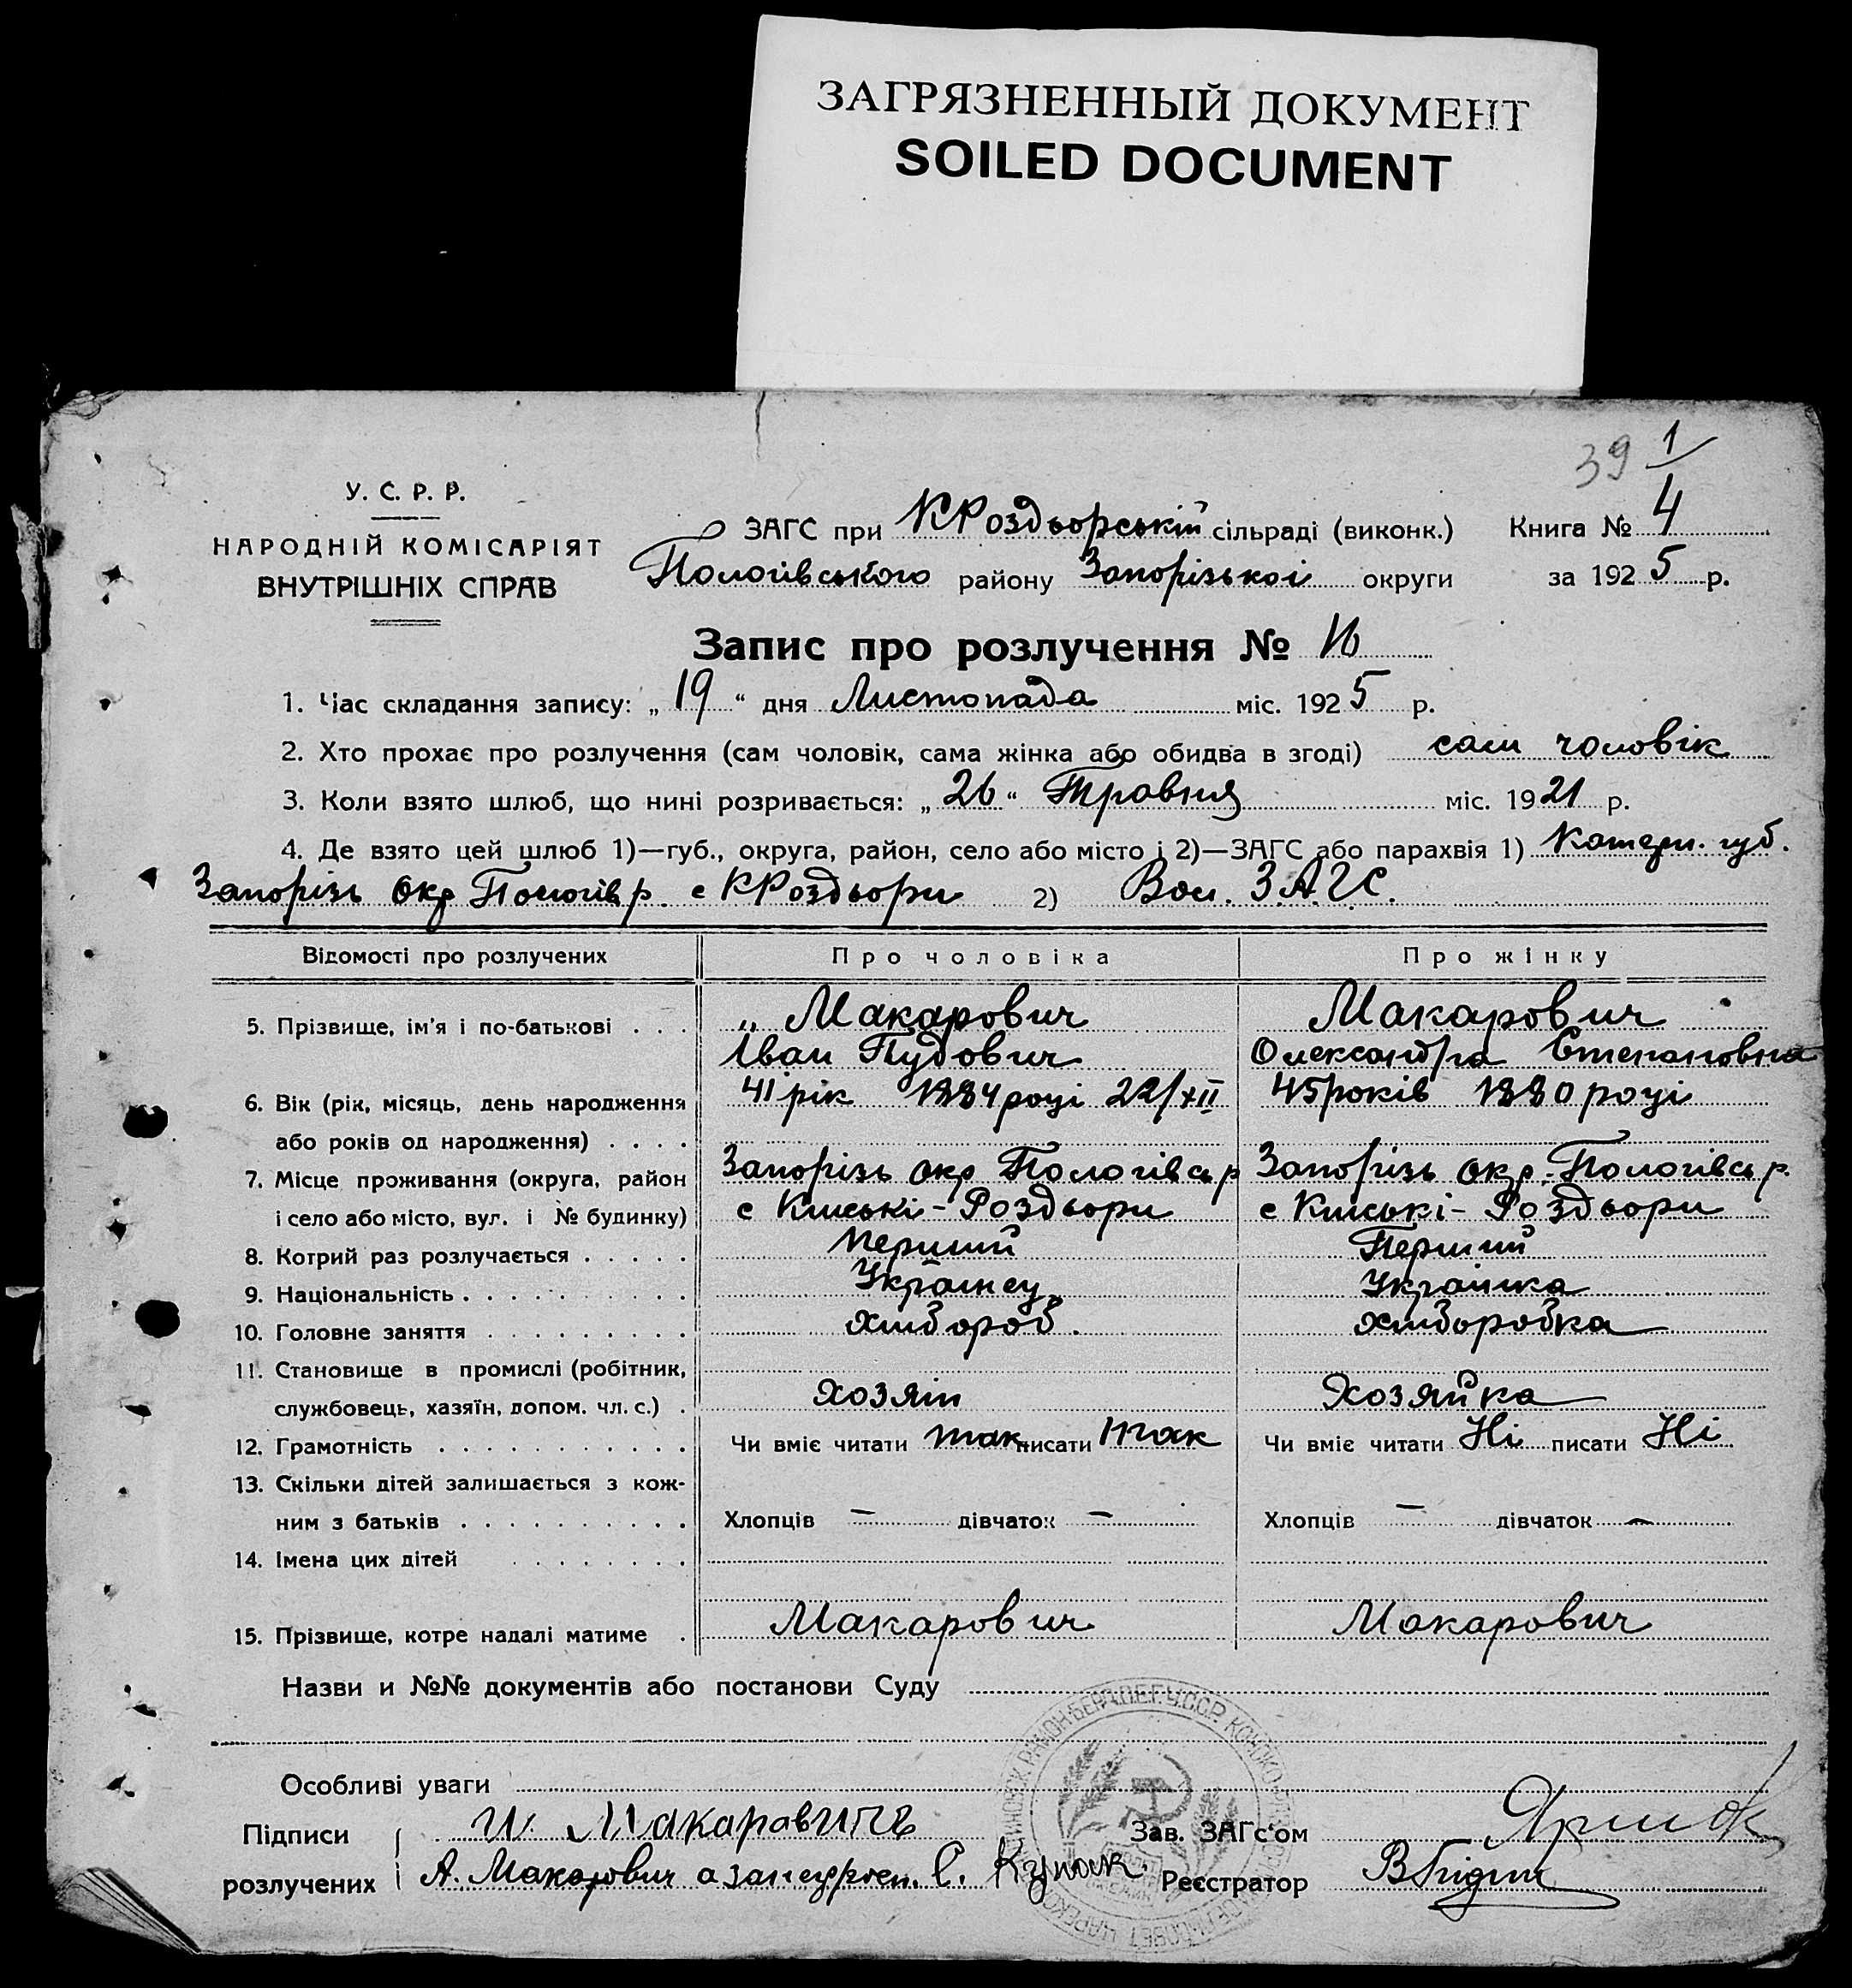 ЗАГРЯЗНЕННЫЙ ДОКУМЕНТ
SOILED DOCUMENT
39 1/
У. С. Р. Р.
НАРОДНІЙ КОМІСАРІЯТ
ВНУТРІШНІХ СПРАВ
ЗАГС при КРоздворській сільраді (виконк.) Книга № 4
Пологівського району Запорізькоі округи за 1925 р.
Запис про розлучення № 16
1. Час складання запису: „19“ дня Листопада міс. 1925 р.
2. Хто прохає про розлучення (сам чоловік, сама жінка або обидва в згоді) сам чоловік
3. Коли взято шлюб, що нині розривається: „26“ Травня міс. 1921 р.
4. Де взято цей шлюб 1)—губ., округа, район, село або місто і 2)—ЗАГС або парахвія 1) Катери. губ.
Запорізь окр Пологів р. с КРоздвори 2) Вол. З.А.Г.С.
Відомості про розлучених Про чоловіка Про жінку
5. Прізвище, ім'я і по-батькові . . . „ Макарович Макарович
Іван Пудович Олександра Степановна
6. Вік (рік, місяць, день народження 41 рік 1884 році 22/XII 45 років 1880 році
або років од народження) . . . .
7. Місце проживання (округа, район Запорізь окр Пологівсь р Запорізь окр. Пологівсь р.
і село або місто, вул. і № будинку) с Кінські-Роздвори с Кінські-Роздвори
8. Котрий раз розлучається . . . . . Перший Перший
9. Національність . . . . . . . . . . Українец Украінка
10. Головне заняття . . . . . . . . . Хлібороб. Хліборобка
11. Становище в промислі (робітник,
службовець, хазяїн, допом. чл. с.) . Хозяін Хозяйка
12. Грамотність . . . . . . . . . . . Чи вміє читати так писати так Чи вміє читати Ні писати Ні
13. Скільки дітей залишається з кож-
ним з батьків . . . . . . . . . . Хлопців — дівчаток — Хлопців — дівчаток —
14. Імена цих дітей . . . . . . .
15. Прізвище, котре надалі матиме . Макарович Макарович
Назви и №№ документів або постанови Суду
Особливі уваги
Підписи И. Макаравичь Зав. ЗАГс'ом
розлучених А. Макарович а за С. Реєстратор